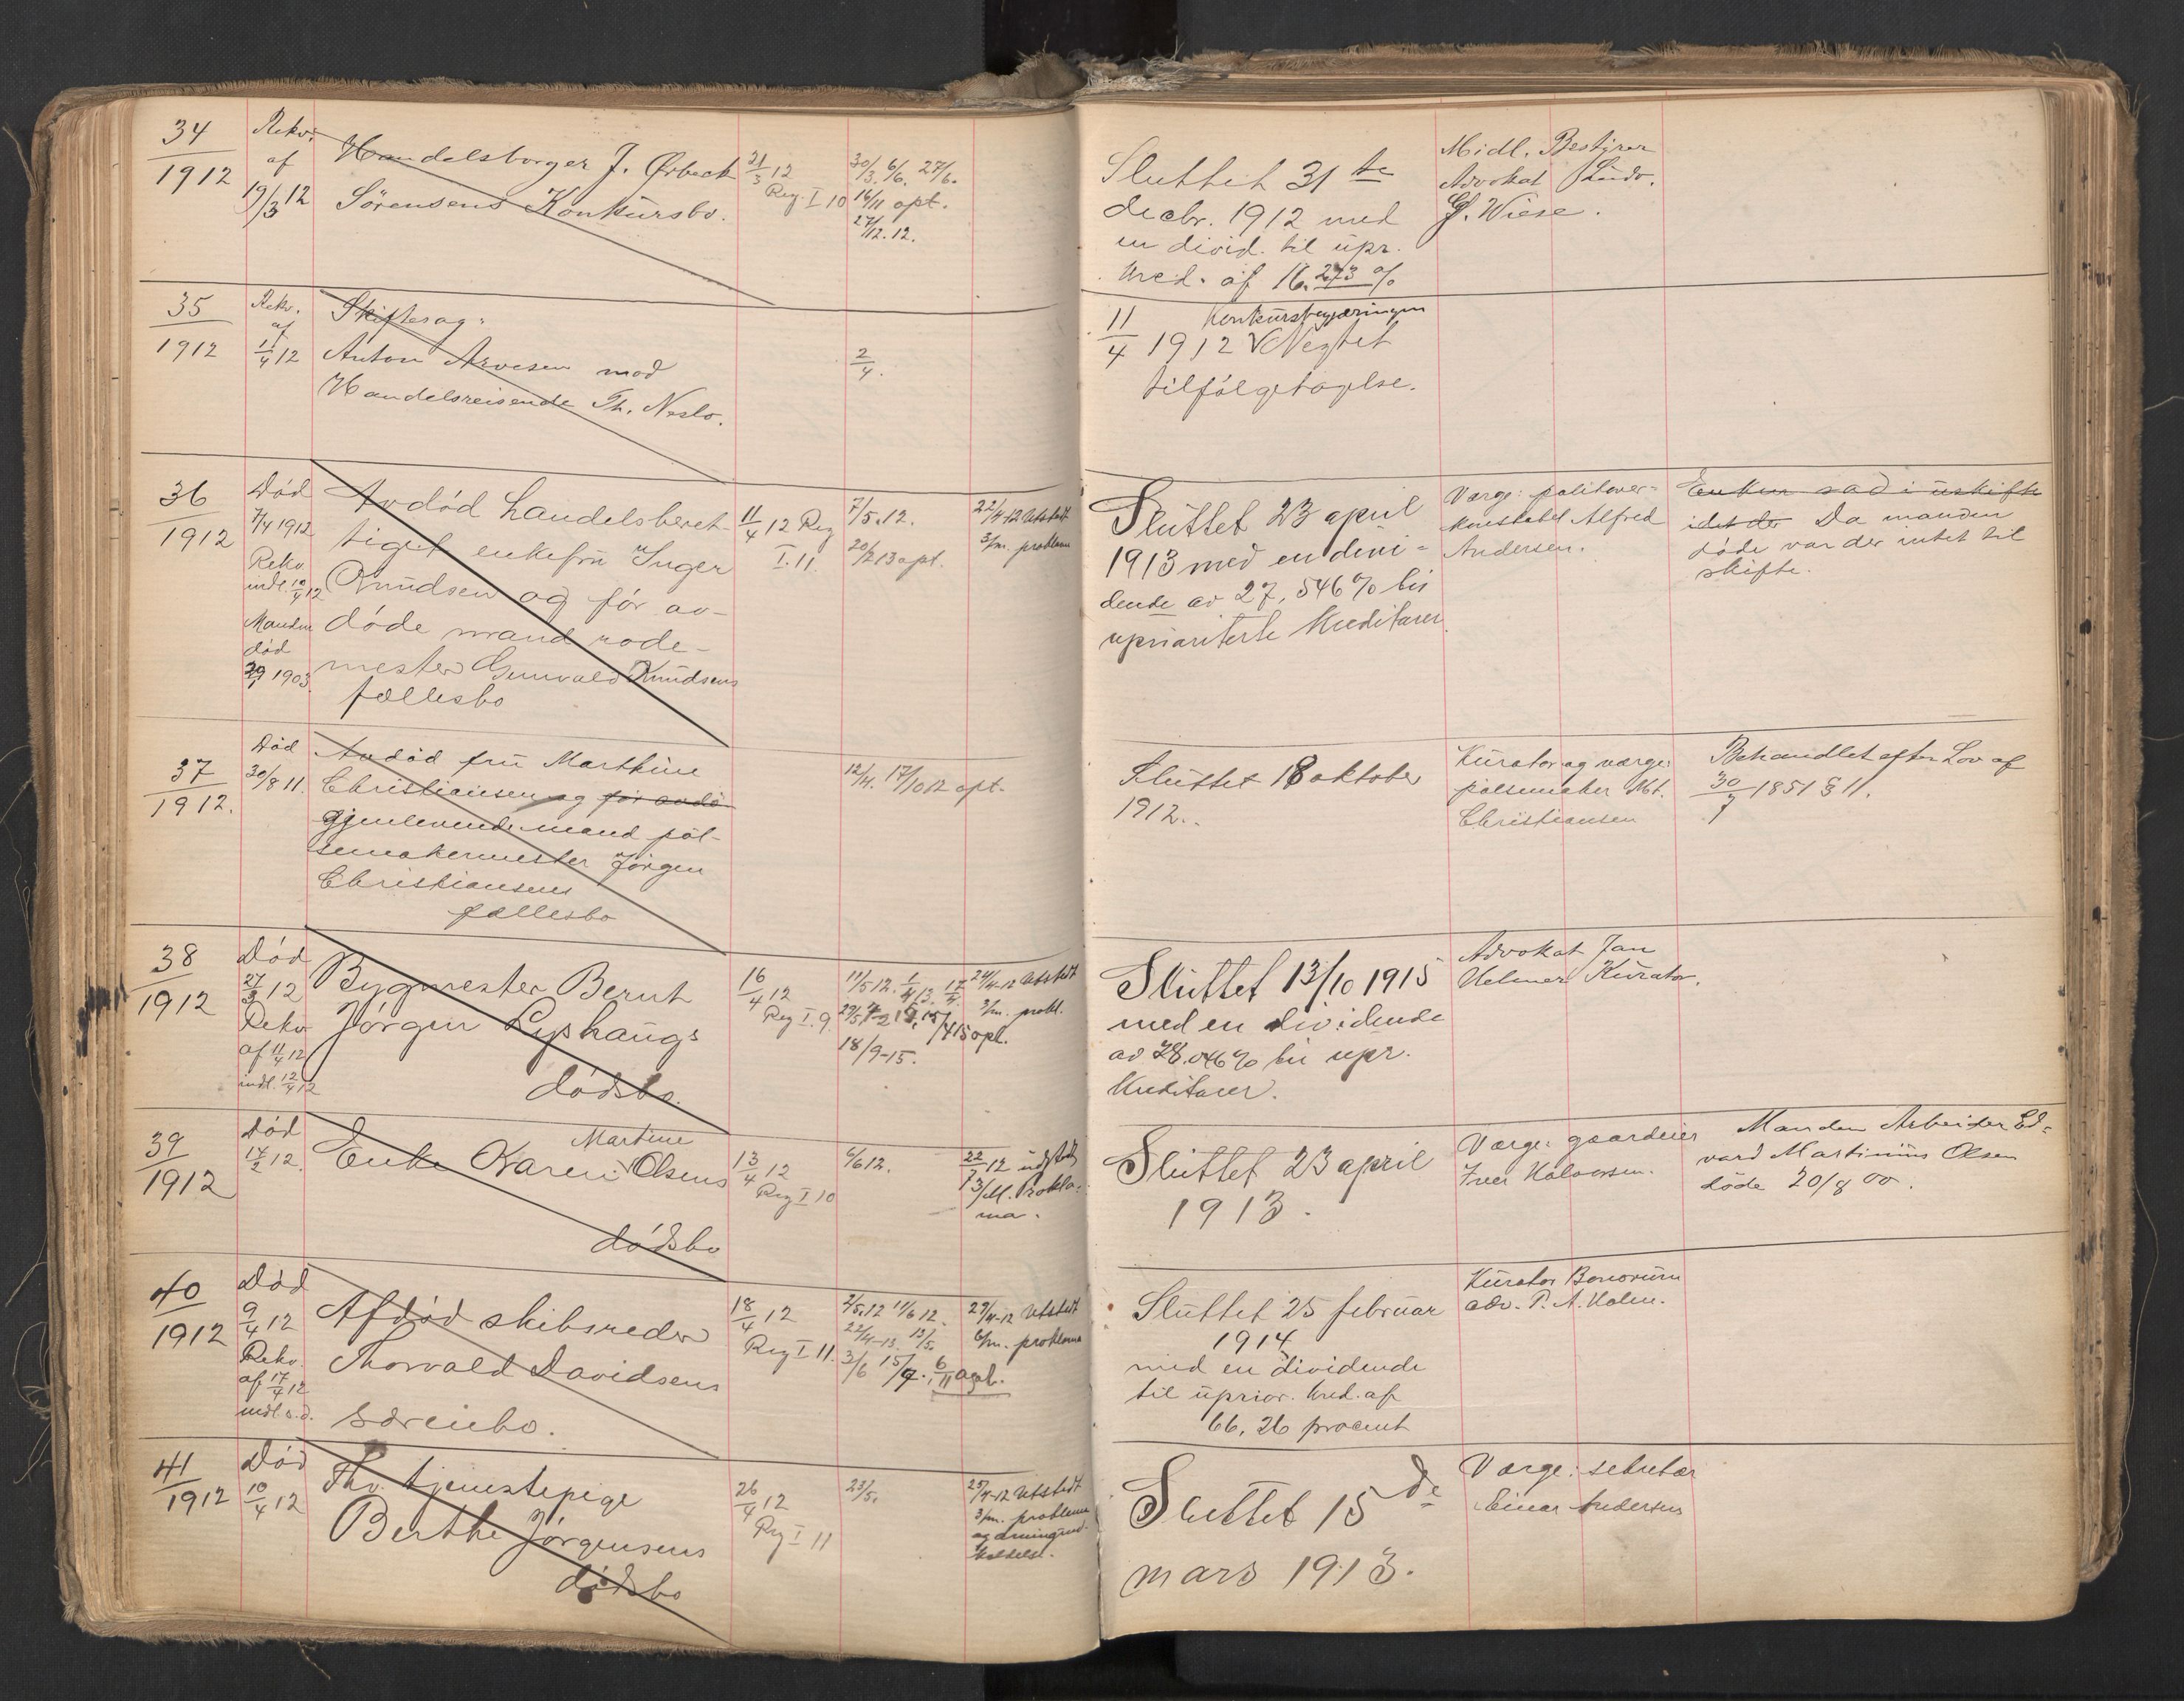 34
1912
Rekv.
af
19/3 12
Handelsborger J. Ørbeck
Sörensens Konkursbo.
21/3 12
Reg. I 10
30/3. 6/6. 27/6.
16/11 opt.
27/12. 12.
Sluttet 31te
decbr. 1912 med
en divid. til upr.
kred. af 16.273 %
Midl. Bestyrer
Advokat Ludv.
G. Wiese.
35
1912
Rekv.
af
1/4 12
Skiftesag:
Anton Arvesen mod
Handelsreisende Th. Neslo.
2/4.
11/4 1912 Konkursbegjæringen
Negtet
tilfölgetagelse.
36
1912
Död
7/4 1912
Rekv.
indl. 10/4 12
Manden
död
1903
Avdöd handelsberet-
tiget enkefru Inger
Knudsen og för av-
döde mand rode-
mester Gunvald Knudsens
fællesbo
11/4 12 Reg
I. 11.
7/5.12.
20/2 13 opt.
22/4-12 Utstedt
3/m. proklama
Sluttet 23 april
1913 med en divi-
dende av 27,546 % til
uprioriterte kreditorer.
Værge: politiover-
konstabel Alfred
Andersen.
Enken sad i uskifte
Da manden
döde var der intet til
skifte.
37
1912.
Död
30/8 11.
Avdöd fru Marthine
Christiansen og för avdö
gjenlevende mand pöl-
semakermester Jörgen
Christiansens
fællesbo
12/4. 17/10 12 opt.
Sluttet 18 oktober
1912.
Kurator og værge:
pölsemaker
Christiansen
Behandlet efter Lov af
30/7 1851 § 11.
38
1912
Död
27/3 12
Rekv
af 11/4 12
indl. 12/4 12
Bygmester Bernt
Jörgen Lyshaugs
dödsbo.
16/4 12
Reg I. 9.
11/5 12.
18/9-15.
24/4-12 Utstedt
3/m. prokl.
Sluttet 13/10 1915
med en dividende
av 28.046 % til upr.
kreditorer.
Advokat Jan
Helmer Kurator.
39
1912
Död
14/2 12.
Martine
Enke Karen Olsens
dödsbo
13/4 12
Reg I 10
6/6 12.
3/M. Prokla-
ma.
Sluttet 23 april
1913.
Værge: gaardeier
Iver Halvorsen.
Manden Arbeider Ed-
vard Martinius Olsen
döde 20/8 00.
40
1912
Död
9/4 12
Rekv.
af 17/4 12
indl. s.d.
Afdöd skibsreder
Thorvald Davidsens
særeiebo.
18/4 12
Reg I 11.
2/5.12 11/6 12.
22/4-13. 13/5.
3/6 15/9. 6/11 opt.
29/4-12 Utstedt
6/m. proklama
Sluttet 25 februar
1914
med en dividende
til uprior. kred. af
66,26 procent
Kurator Bonorum
adv. P. A. Holm.
41
1912
Död
10/4 12
Fhv. tjenestepige
Berthe Jörgensens
dödsbo
26/4 12
Reg I 11
23/5.
25/4-12 Utstedt
3/m. proklama
Sluttet 15de
mars 1913.
Værge: sekretær
Einar Andersen